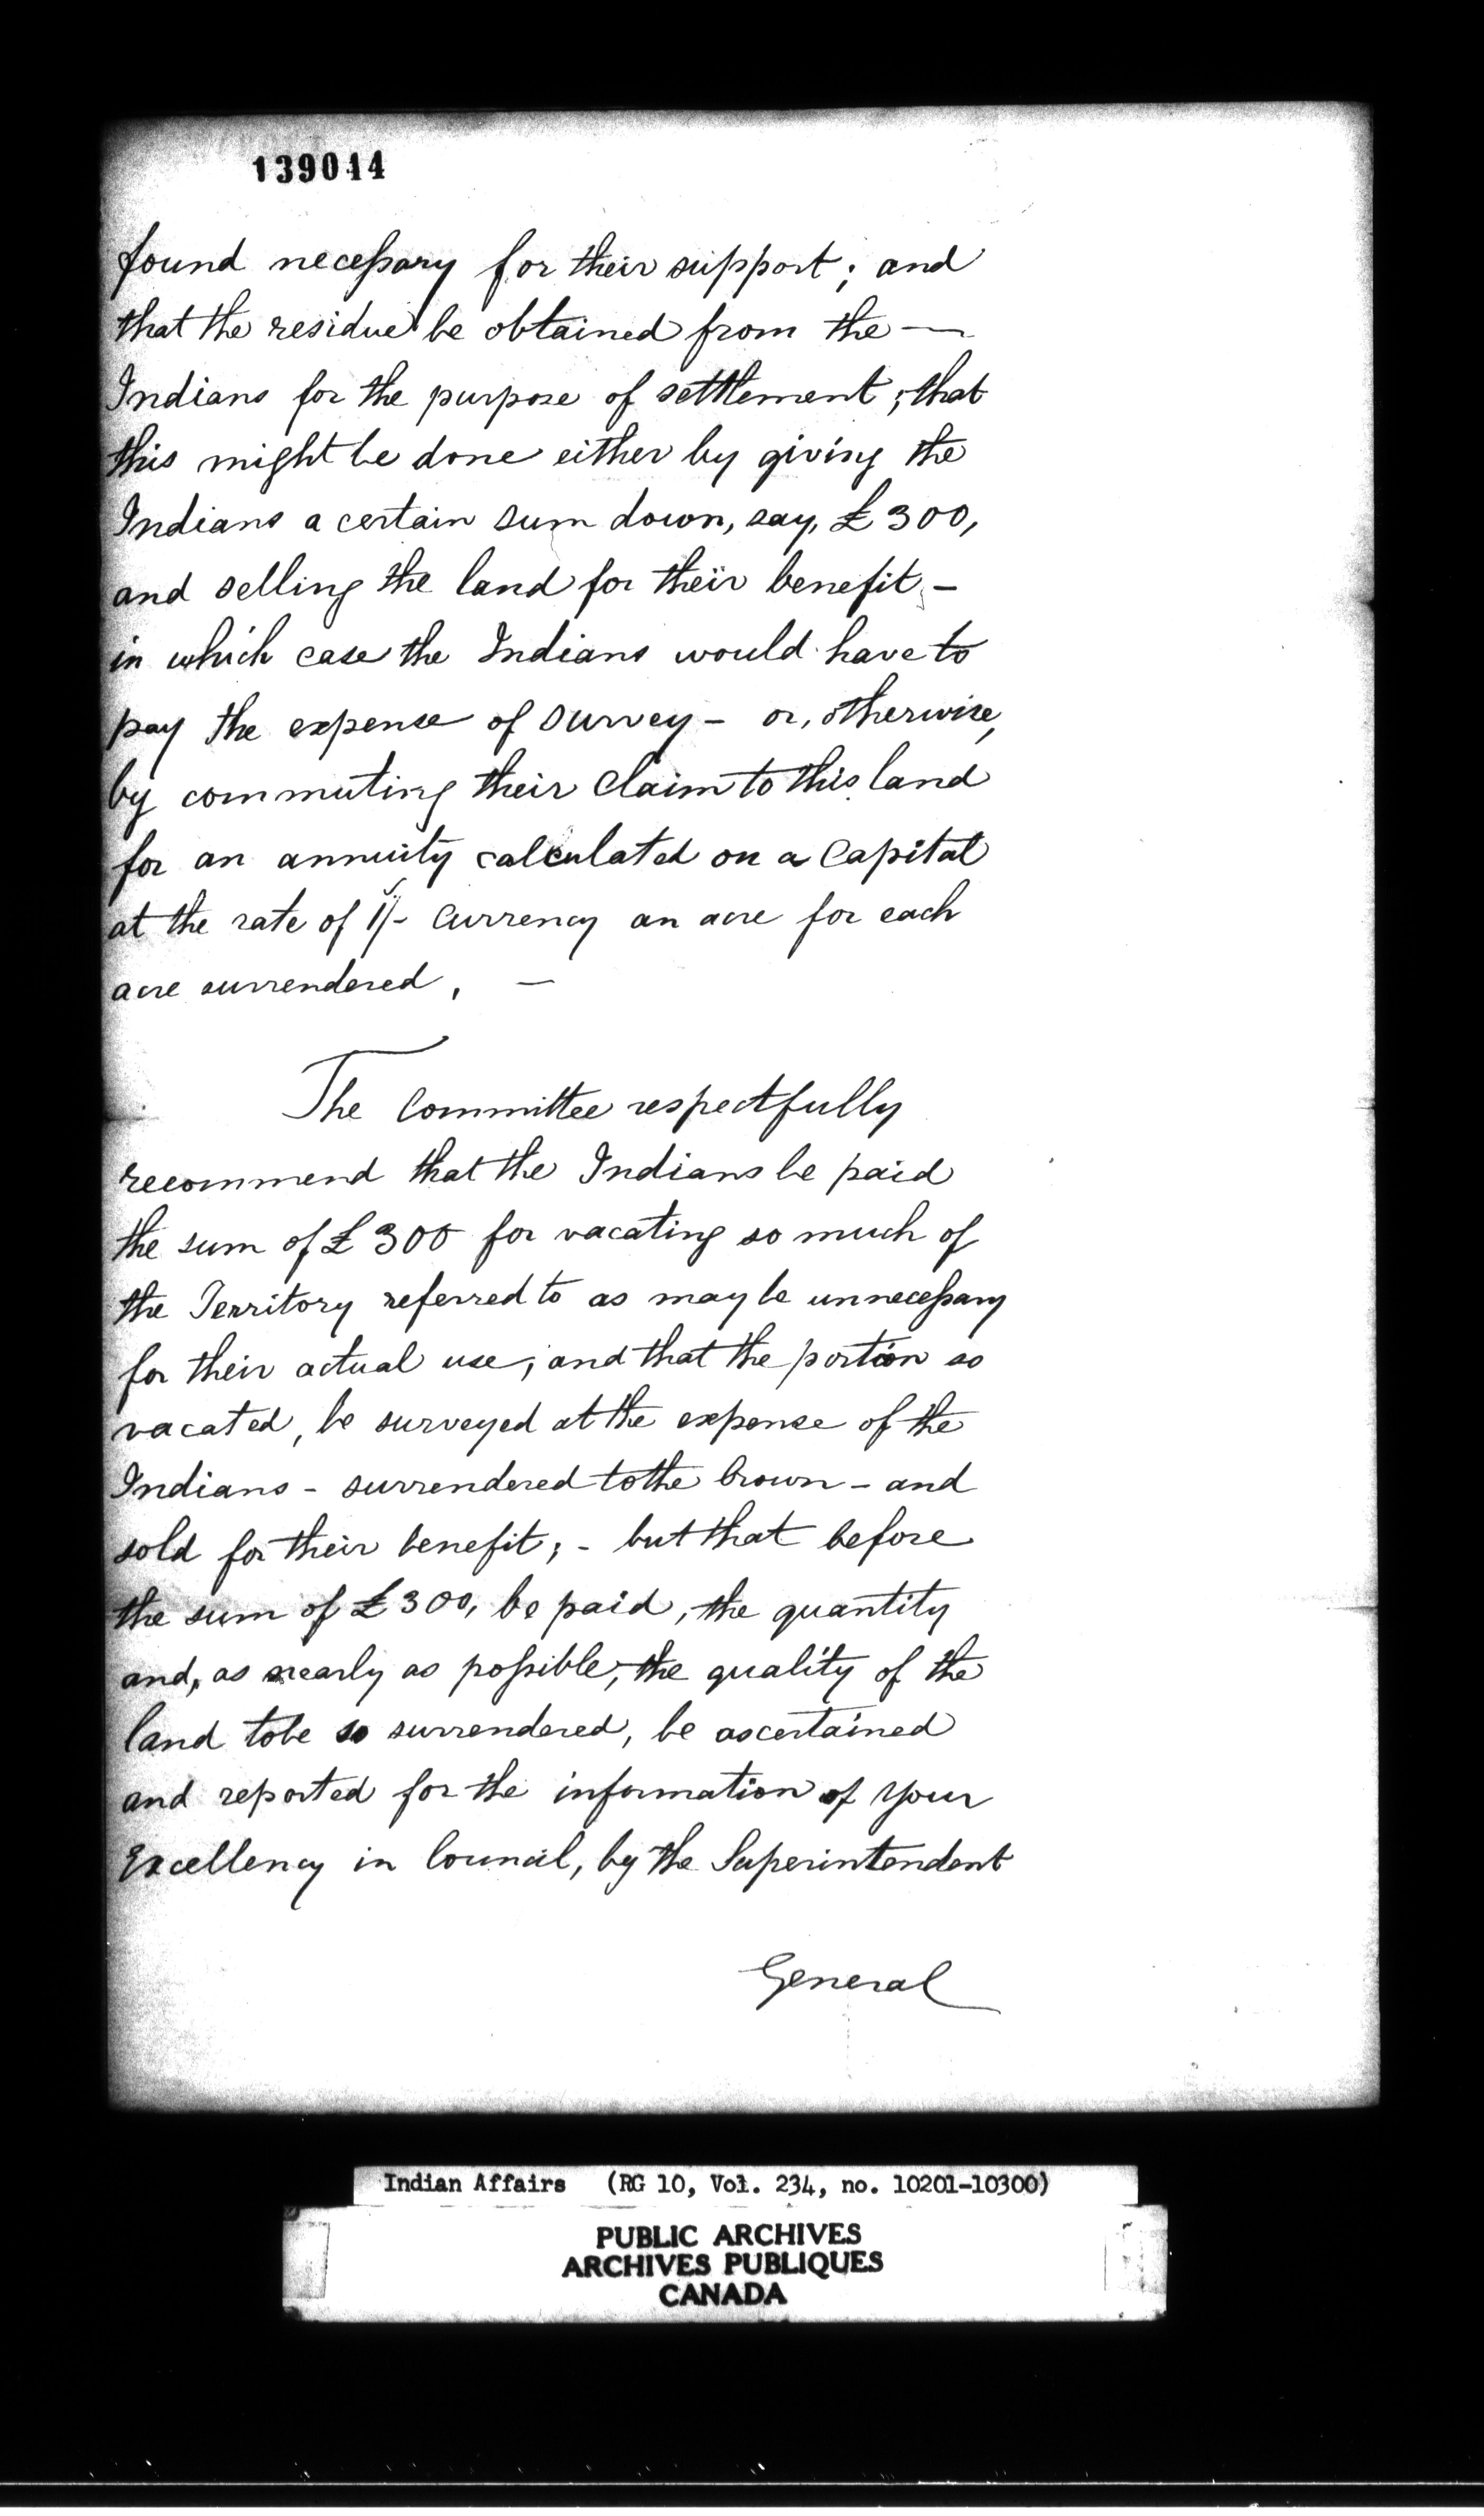 139014
found necessary for their support; and
that the residue be obtained from the —
Indians for the purpose of settlement; that
this might be done either by giving the
Indians a certain sum down, say, £300,
and selling the land for their benefit, -
in which case the Indians would have to
pay the expense of survey - or, otherwise,
by commuting their Claim to this land
for an annuity calculated on a Capital
at the rate of 1/- Currency an acre for each
acre surrendered, —
The Committee respectfully
recommend that the Indians be paid
the sum of £300 for vacating so much of
the Territory referred to as may be unnecessary
for their actual use; and that the portion so
vacated, be surveyed at the expense of the
Indians - surrendered to the Crown - and
sold for their benefit; - but that before
the sum of £300, be paid, the quantity
and, as nearly as possible, the quality of the
land to be so surrendered, be ascertained
and reported for the information of Your
Excellency in Council, by the Superintendent
General
Indian Affairs (RG 10, Vol. 234, no. 10201-10300)
PUBLIC ARCHIVES
ARCHIVES PUBLIQUES
CANADA